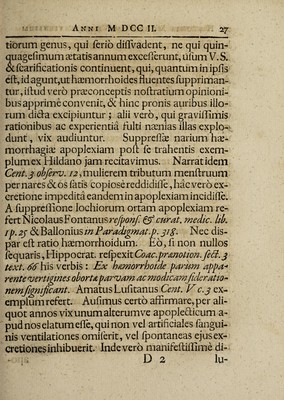 ANNI M DCC II. 27
tiorum genus, qui seriò dissvadent, ne qui quin-
quagesimum ætatis annum excesserunt, usum V. S.
& scarificationis continuent, qui, quantum in ipsis
est, id agunt, ut hæmorrhoides fluentes suppriman-
tur, istud verò præconceptis nostratium opinioni-
bus apprimè convenit, & hinc pronis auribus illo-
rum dicta excipiuntur; alii verò, qui gravissimis
rationibus ac experientiâ fulti nænias illas explo-
dunt, vix audiuntur. Suppressiæ narium hæ-
morrhagiæ apoplexiam post se trahentis exem-
plum ex Hildano jam recitavimus. Narrat idem
Cent. 3 observ. 12, mulierem tributum menstruum
per nares & os satis copiosè reddidisse, hâc verò ex-
cretione impeditâ eandem in apoplexiam incidisse.
A suppressione lochiorum ortam apoplexiam re-
fert Nicolaus Fontanus respons. & curat. medic. lib.
1 p. 25 & Ballonius in Paradigmat. p. 318. Nec dis-
par est ratio hæmorrhoidum. Eò, si non nullos
sequaris, Hippocrat. respexit Coac. prænotion. sect. 3
text. 66 his verbis: Ex hæmorrhoide parum appa-
rente vertigines obortæ parvam ac modicam sideratio-
nem significant. Amatus Lusitanus Cent. V c. 3 ex-
emplum refert. Ausimus certò affirmare, per ali-
quot annos vix unum alterumve apoplecticum a-
pud nos elatum esse, qui non vel artificiales sangui-
nis ventilationes omiserit, vel spontaneas ejus ex-
cretiones inhibuerit. Inde verò manifestissimè di-
D 2 lu-